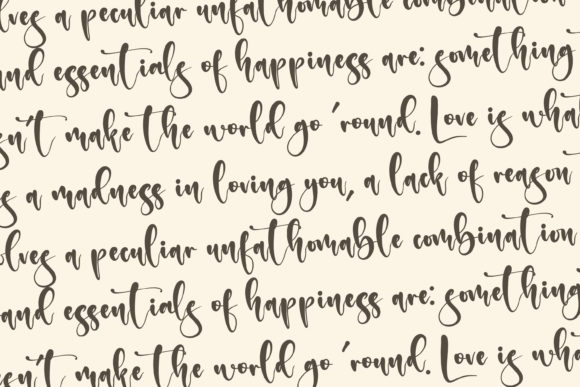 olves a peculiar unfathomable combination
and essentials of happiness are: something
sn't make the world go 'round. Love is what
s a madness in loving you, a lack of reason
olves a peculiar unfathomable combination
and essentials of happiness are: something
esn't make the world go 'round. Love is wha